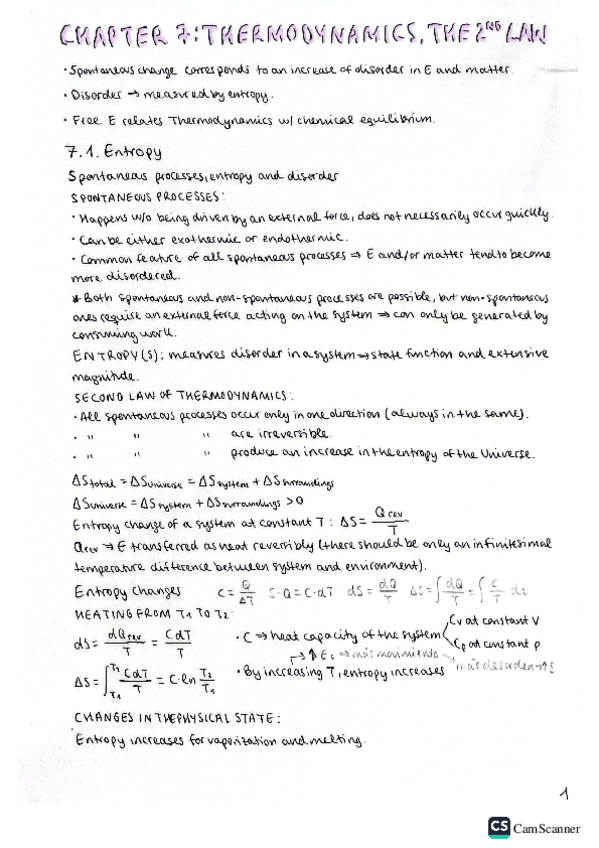 CHAPTER 7: THERMODYNAMICS. THE 2ND LAW
· Spontaneous change corresponds to an increase of disorder in E and matter.
· Disorder → measured by entropy.
· Free E relates Thermodynamics w/ chemical equilibrium.
7.1. Entropy
Spontaneous processes, entropy and disorder
SPONTANEOUS PROCESSES:
· Happens w/o being driven by an external force, does not necessarily occur quickly.
· Can be either exothermic or endothermic.
· Common feature of all spontaneous processes ⇒ E and/or matter tend to become
more disordered.
* Both spontaneous and non-spontaneous processes are possible, but non-spontaneous
ones require an external force acting on the system ⇒ can only be generated by
consuming work.
ENTROPY (S): measures disorder in a system ⇒ state function and extensive
magnitude.
SECOND LAW OF THERMODYNAMICS:
· All spontaneous processes occur only in one direction (always in the same).
· " " " are irreversible.
· " " " produce an increase in the entropy of the Universe.
ΔStotal = ΔSuniverse = ΔSsystem + ΔSsurroundings
ΔSuniverse = ΔSsystem + ΔSsurroundings > 0
Entropy change of a system at constant T: ΔS = Qrev/T
Qrev ⇒ E transferred as heat reversibly (there should be only an infinitesimal
temperature difference between system and environment).
Entropy changes C = Q/ΔT δ·Q = C·dT dS = dQ/T ΔS = ∫dQ/T = ∫C/T dt
HEATING FROM T1 TO T2:
dS = dQrev/T = CdT/T · C ⇒ heat capacity of the system Cv at constant V
Cp at constant p
↑Ec ⇒ más movimiento
ΔS = ∫T1T2 CdT/T = C·ln T2/T1 · By increasing T, entropy increases más desorden → ↑S
CHANGES IN THE PHYSICAL STATE:
Entropy increases for vaporization and melting.
1
CS CamScanner